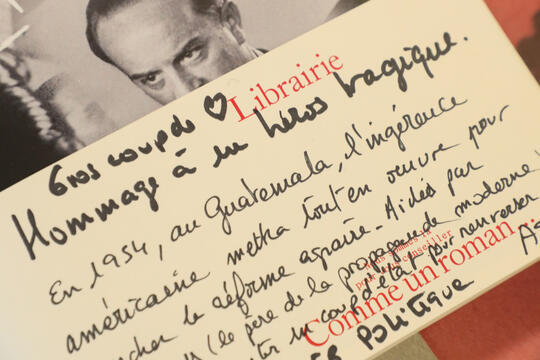 Gros coup de ♡
Librairie
Hommage à un héros tragique.
En 1954, au Guatemala, l'ingérence
américaine mettra tout en œuvre pour
la réforme agraire. Aidés par
(le père de la propagande moderne)
un coup d'état pour renverser
nous sommes là
pour vous conseiller
Comme un roman...
Politique